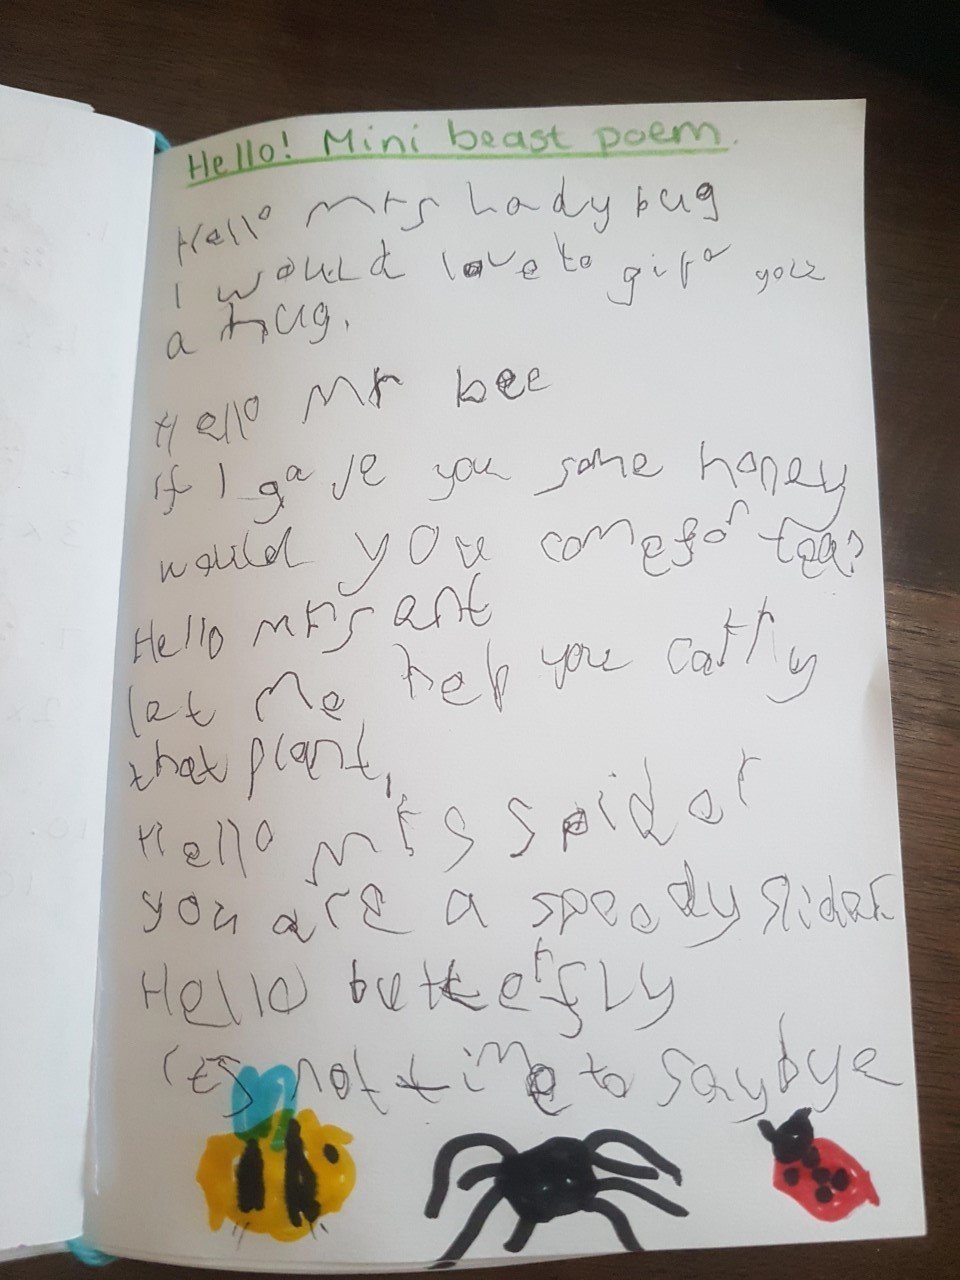 Hello! Mini beast poem.
Hello Mrs Ladybug
I would love to give you
a hug.
Hello Mr bee
if I gave you some honey
would you come for tea?
Hello mrs ant
let me help you carry
that plant.
Hello mrs spider
you are a speedy glider
Hello butterfly
its not time to say bye